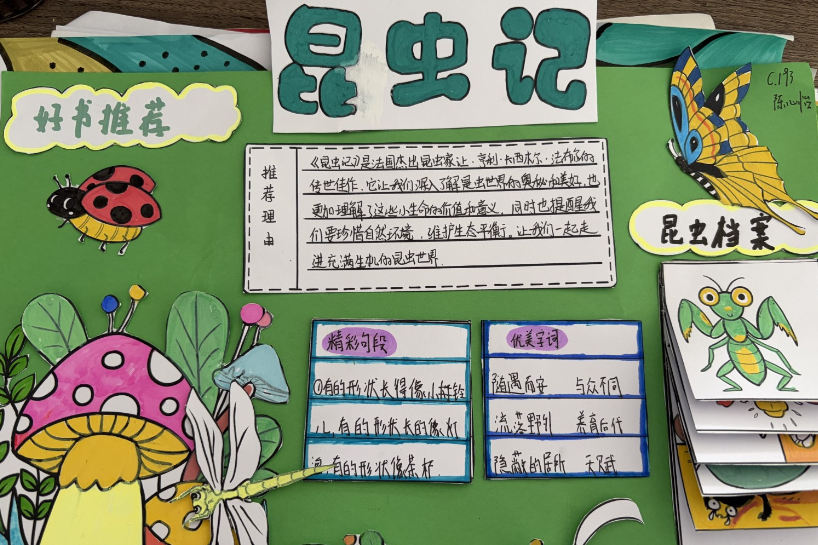 昆虫记
好书推荐
C.193
推荐理由
《昆虫记》是法国杰出昆虫家让·亨利·卡西米尔·法布尔的
传世佳作，它让我们深入了解昆虫世界的奥秘和美好，也
更加理解了这些小生命的价值和意义，同时也提醒我
们要珍惜自然环境，维护生态平衡。让我们一起走
进充满生机的昆虫世界
昆虫档案
精彩句段
①有的形状长得像小铃铛
儿，有的形状长的像灯
有的形状像茶杯
优美字词
随遇而安 与众不同
养育后代
隐蔽的居所